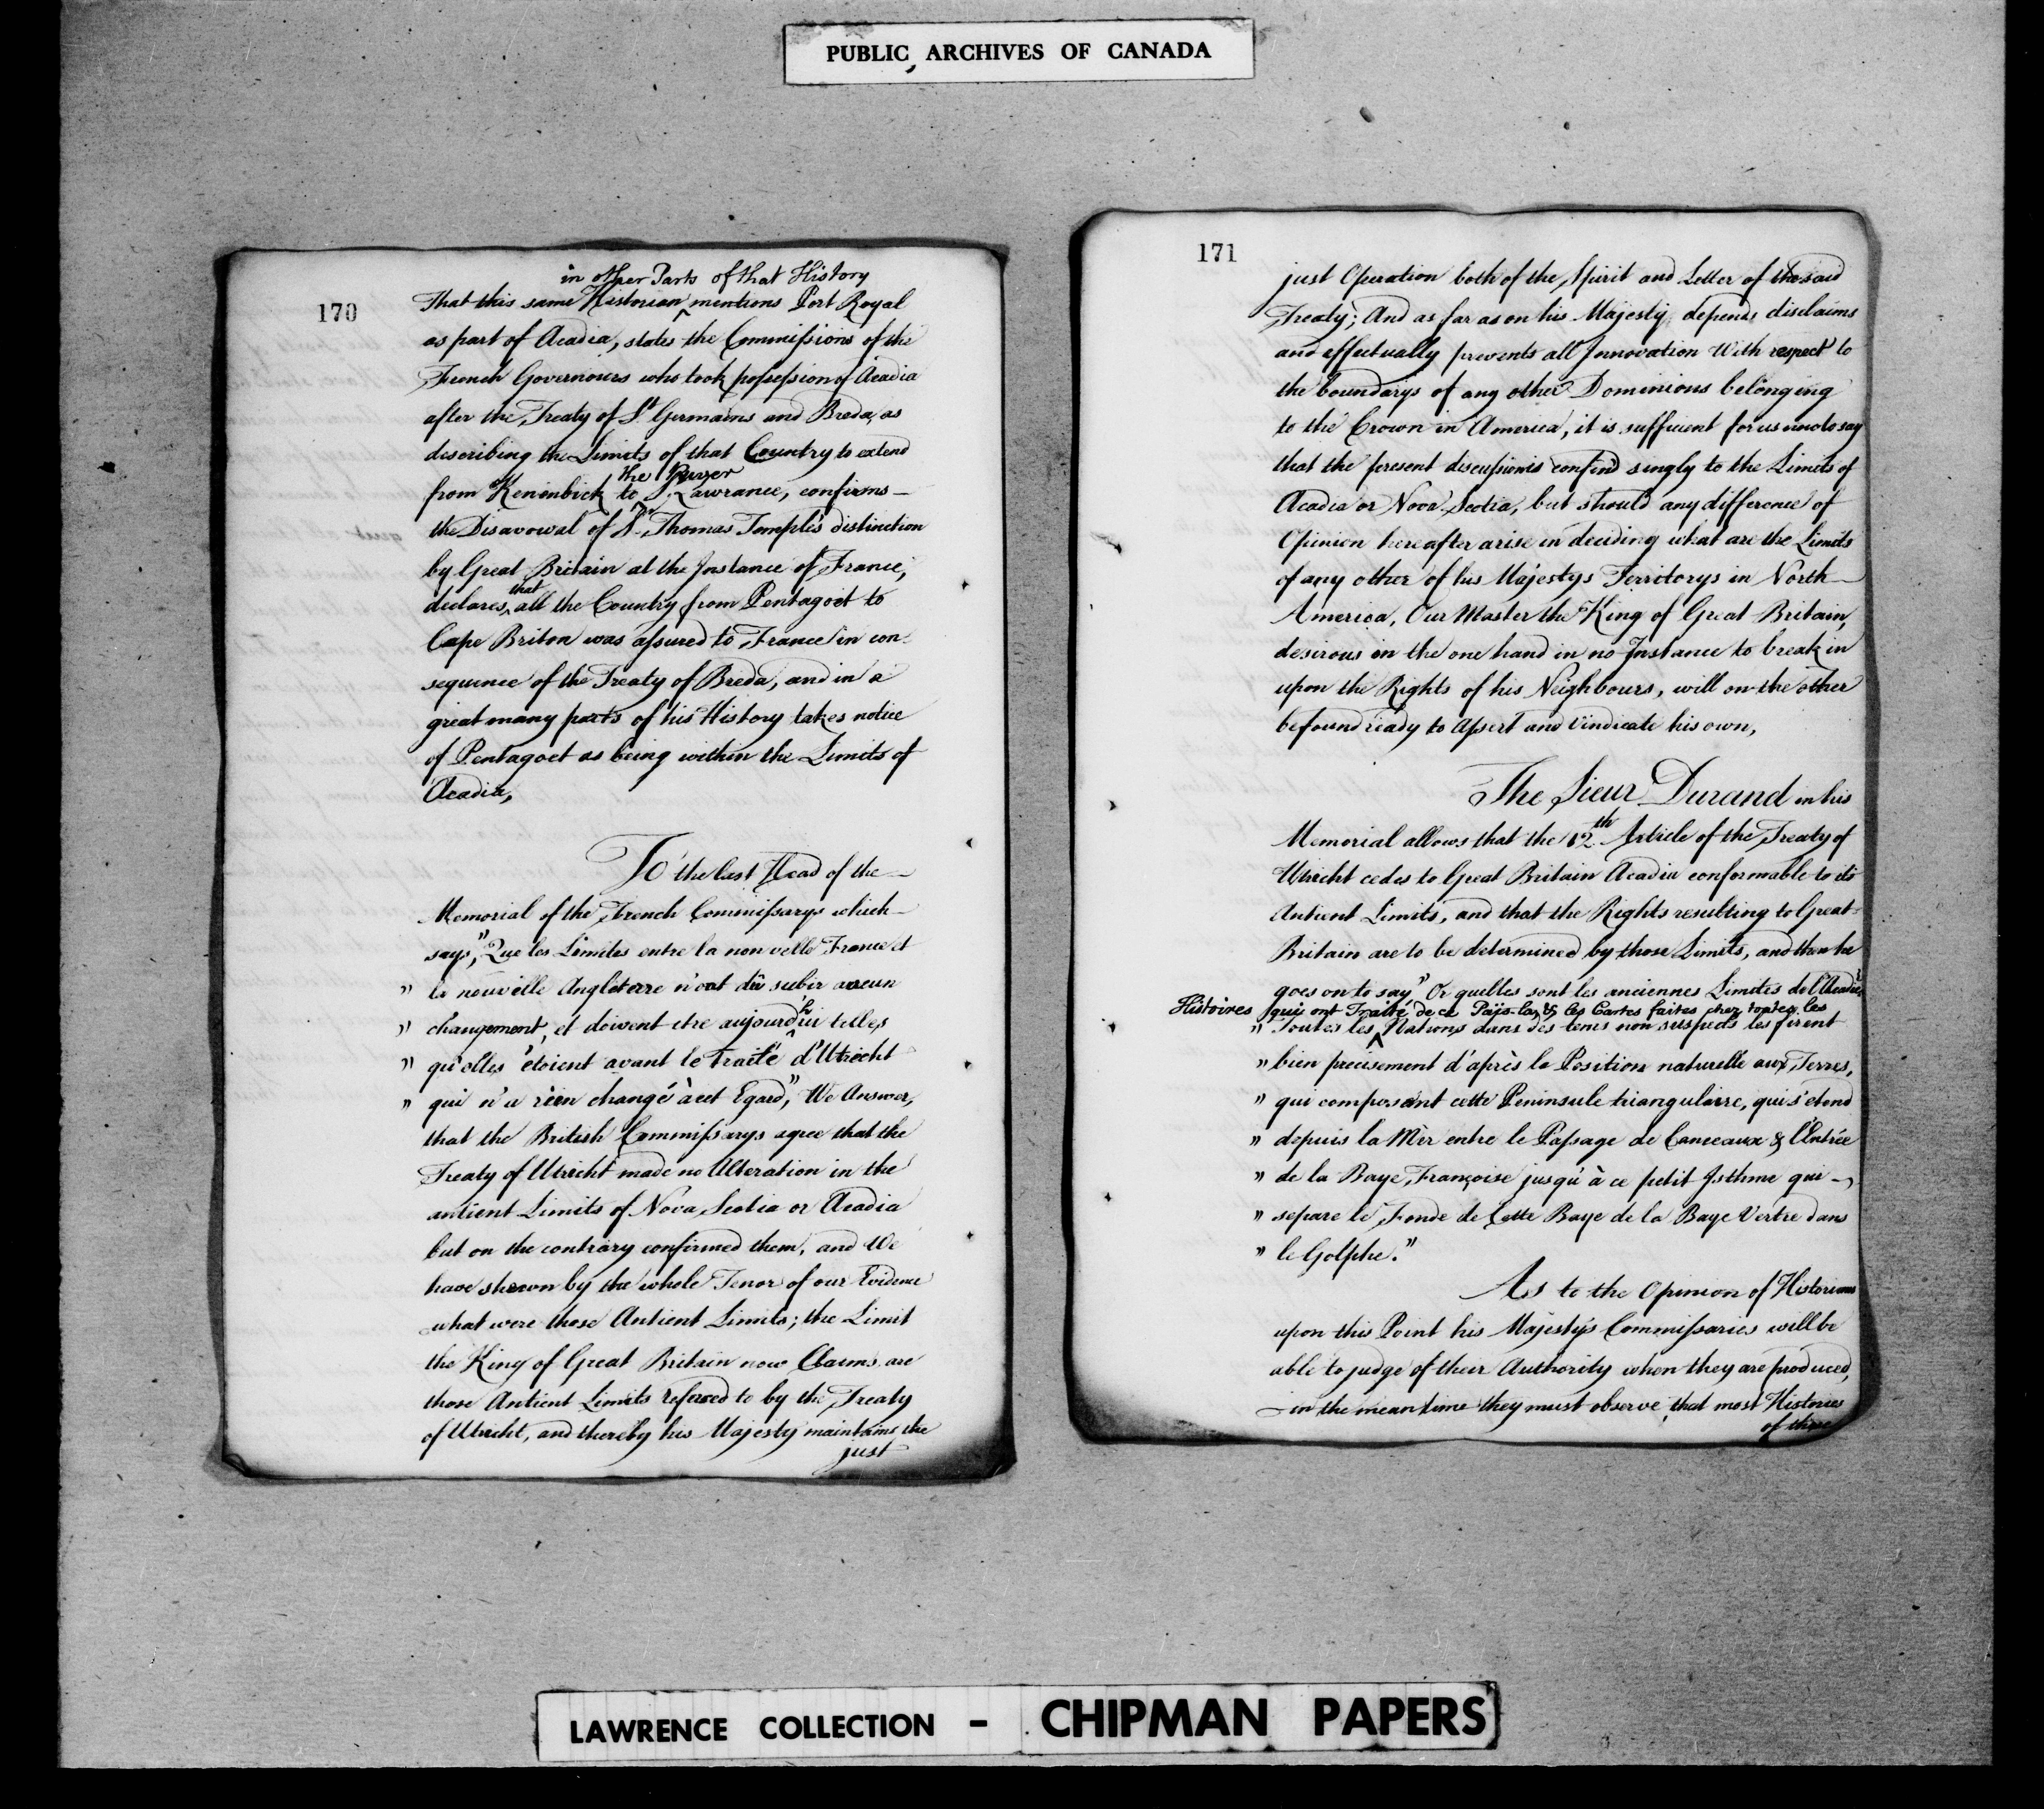 PUBLIC ARCHIVES OF CANADA
170
in other Parts of that History
That this same Historian ^ mentions Port Royal
as part of Acadia, states the Commissions of the
French Governours who took possession of Acadia
after the Treaty of St. Germains and Breda, as
describing the Limits of that Country to extend
the River
from Keninbick to ^ S. Lawrance, confirms
the Disavowal of Sr. Thomas Temple's distinction
by Great Britain at the Instance of France,
that
declares, all the Country from Pentagoet to
Cape Briton was assured to France in con-
sequence of the Treaty of Breda, and in a
great many parts of his History takes notice
of Pentagoet as being within the Limits of
Acadia,
To the last Head of the
Memorial of the French Commissarys which
says, "Que les Limites entre la nouvelle France et
" la nouvelle Angleterre n'ont dû subir aucun
" changement, et doivent etre aujourd'hui telles
" qu'elles étoient avant le traité d'Utrecht
" qui n'a rien changé à cet Egard," We Answer,
that the British Commissarys agree that the
Treaty of Utrecht made no Alteration in the
antient Limits of Nova Scotia or Acadia
but on the contrary confirmed them, and We
have shewn by the whole Tenor of our Evidence
what were those Antient Limits; the Limit
the King of Great Britain now Claims are
those Antient Limits refered to by the Treaty
of Utrecht, and thereby his Majesty maintains the
just
171
just Operation both of the Spirit and Letter of the said
Treaty; And as far as on his Majesty depends disclaims
and effectually prevents all Innovation With respect to
the boundarys of any other Dominions belonging
to the Crown in America, it is sufficient for us now to say
that the present discussion is confin'd singly to the Limits of
Acadia or Nova Scotia, but should any difference of
Opinion hereafter arise in deciding what are the Limits
of any other of his Majestys Territorys in North
America, Our Master the King of Great Britain,
desirous on the one hand in no Instance to break in
upon the Rights of his Neighbours, will on the other
be found ready to Assert and Vindicate his own,
The Sieur Durand in his
Memorial allows that the 12th Article of the Treaty of
Utricht cedes to Great Britain Acadia conformable to its
Antient Limits, and that the Rights resulting to Great
Britain are to be determined by those Limits, and then he
goes on to say," Or quelles sont les anciennes Limites de l'Acadie,
Histoires qui ont Traité de ce Païs-la, & les Cartes faites chez toutes les
" Toutes les ^ Nations dans des tems non suspects les firent
" bien precisement d'après la Position naturelle aux Terres,
" qui composent cette Peninsule triangulaire, qui s'etend
" depuis la Mèr entre le Passage de Canceaux & l'Entrée
" de la Baye Françoise jusqu'à ce petit Isthme qui
" separe le Fonde de Cette Baye de la Baye Vertre dans
" le Golphe."
As to the Opinion of Historians
upon this Point his Majesty's Commissaries will be
able to judge of their Authority when they are produced,
in the mean time they must observe, that most Histories
of these
LAWRENCE COLLECTION - CHIPMAN PAPERS